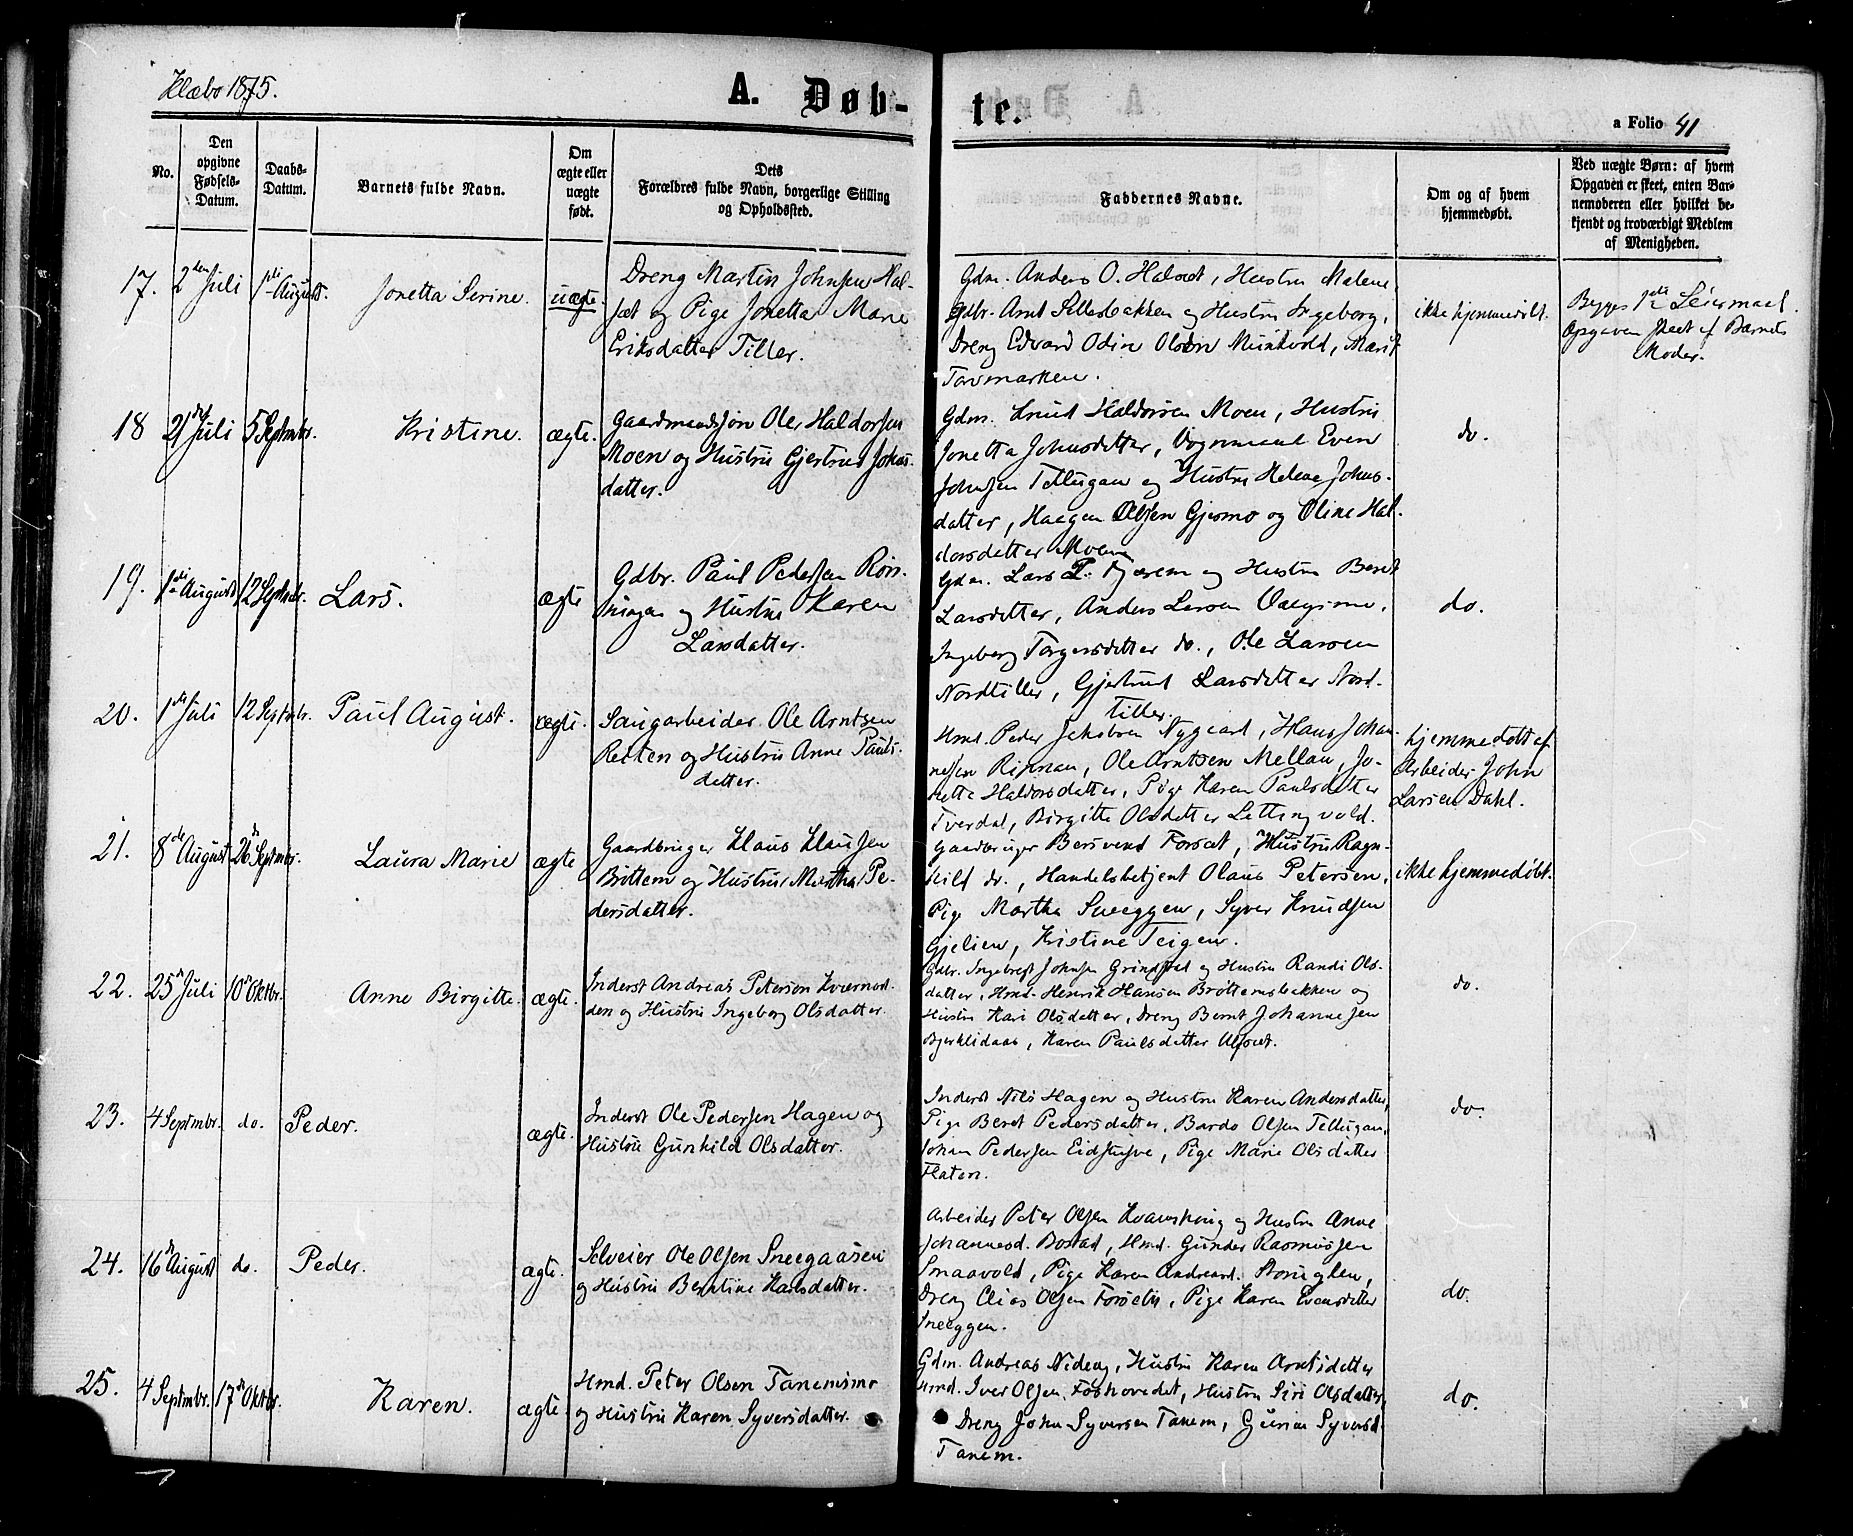 Klæbo 1875.
A. Døb-
te.
a Folio 41
No.
Den opgivne Fødsels-Datum.
Daabs-Datum.
Barnets fulde Navn.
Om ægte eller uægte født.
Dets Forældres fulde Navn, borgerlige Stilling og Opholdssted.
Faddernes Navne.
Om og af hvem hjemmedøbt.
Ved uægte Børn: af hvem Opgaven er skeet, enten Barnemoderen eller hvilket bekjendt og troværdigt Medlem af Menigheden.
17. 2den Juli 1ste August. Jonetta Serine. uægte.
Dreng Martin Johnsen Hal-
set og Pige Jonetta Marie
Eriksdatter Tiller.
Gdm. Anders O. Halset, Hustru Malene,
Gdbr. Arnt Sellesbakken og Hustru Ingeborg,
Dreng Edvard Odin Olsen Munkvold, Marit
Torvmarken.
ikke hjemmedøbt.
Begges 1ste Leiermaal.
Opgaven skeet af Barnets
Moder.
18 21de Juli 5 Septmbr. Kristine. ægte.
Gaardmandssøn Ole Haldorsen
Moen og Hustru Gjertrud Johns-
datter.
Gdm. Knud Haldorsen Moen, Hustru
Jonetta Johnsdatter, Vognmand Even
Johnsen Tellugan og Hustru Helene Johns-
datter, Haagen Olsen Gjesmo og Oline Hal-
dorsdatter Moen
do.
19. 1ste August 12 Septmbr. Lars. ægte
Gdbr. Paul Pedersen Røs-
ningan og Hustru Karen
Larsdatter.
Gdm. Lars P. Fjærem og Hustru Beret
Larsdatter, Anders Larsen
Ingeborg Torgersdatter do., Ole Larsen
Nordtiller, Gjertrud Larsdatter Nord-
tiller.
do.
20. 1ste Juli 12 Septmbr. Paul August. ægte.
Saugarbeider Ole Arntsen
Reiten og Hustru Anne Pauls-
datter.
Hmd. Peder Jakobsen Nygaard, Hans Johan-
nesen Rinnan, Ole Arntsen Mellan, Jo-
netta Haldorsdatter, Pige Karen Paulsdatter
Tverdal, Birgitte Olsdatter Lettingvold.
hjemmedøbt af
Arbeider John
Larsen Dahl.
21. 8de August 26d Septmbr. Laura Marie ægte
Gaardbruger Klaus Klausen
Brøttem og Hustru Martha Pe-
dersdatter.
Gaardbruger Bersvend Forset, Hustru Ragn-
hild do., Handelsbetjent Olaus Petersen,
Pige Martha Sneeggen, Syver Knudsen
Gjelien, Kristine Teigen.
ikke hjemmedøbt.
22. 25d Juli 10d Oktbr. Anne Birgitte. ægte.
Inderst Andreas Petersen Kværnød-
den og Hustru Ingeborg Olsdatter.
Gdbr. Ingebregt Johnsen Grindstad og Hustru Randi Ols-
datter, Hmd. Henrik Hansen Brøttemsbakken og
Hustru Kari Olsdatter, Dreng Bernt Johannesen
Bjerklidaas, Karen Paulsdatter Ulset.
do.
23. 4 Septmbr. do. Peder. ægte.
Inderst Ole Pedersen Hagen og
Hustru Gunhild Olsdatter.
Inderst Nils Hagen og Hustru Karen Andersdatter,
Pige Beret Pedersdatter, Bardo Olsen Tellugan,
Johan Pedersen Eidstuve, Pige Marie Olsdatter
Flaten.
do.
24. 16d August do. Peder. ægte.
Selveier Ole Olsen Sneegaasen
og Hustru Berntine Karlsdatter.
Arbeider Peter Olsen og Hustru Anne
Johannesd. Bostad, Hmd. Gunder Rasmussen
Smaavold, Pige Karen Andreasd.
Dreng Elias Olsen Forseth, Pige Karen Evensdatter
Sneeggen.
do.
25. 4 Septmbr. 17d Oktbr. Karen. ægte
Hmd. Peter Olsen Tanemsmo
og Hustru Karen Syversdatter.
Gdm. Andreas Nideng, Hustru Karen Arntsdatter
Hmd. Iver Olsen Foshovedet, Hustru Siri Olsdatter,
Dreng John Syversen Tanem, Guruna Syversd.
Tanem.
do.